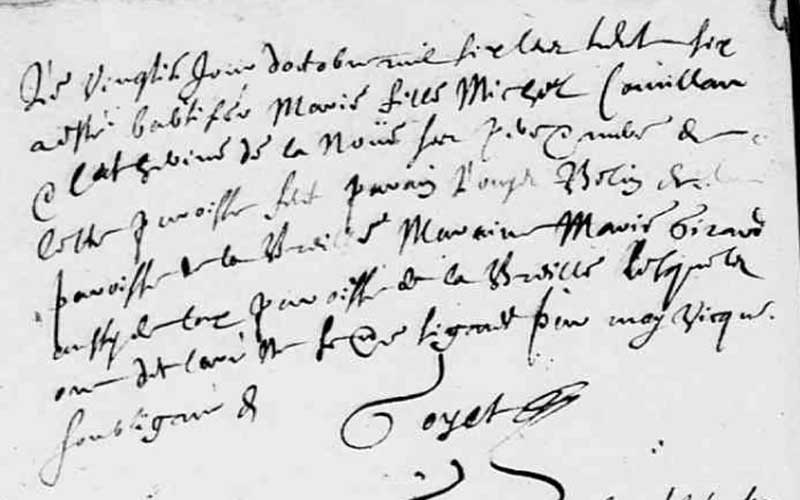 Le vingtie Jour doctobre mil six
a esté babtisée Marie fille Michel Couillau
& Catherine de la Noüe ses pere & mere de
cette paroisse fut parain Louys Belin de la
paroisse de la Breille Maraine Marie Giraud
aussy de lad paroisse de la Breille lesquels
ont declaré ne scavoir signer par moy vicqre
soubsigné
Goyet